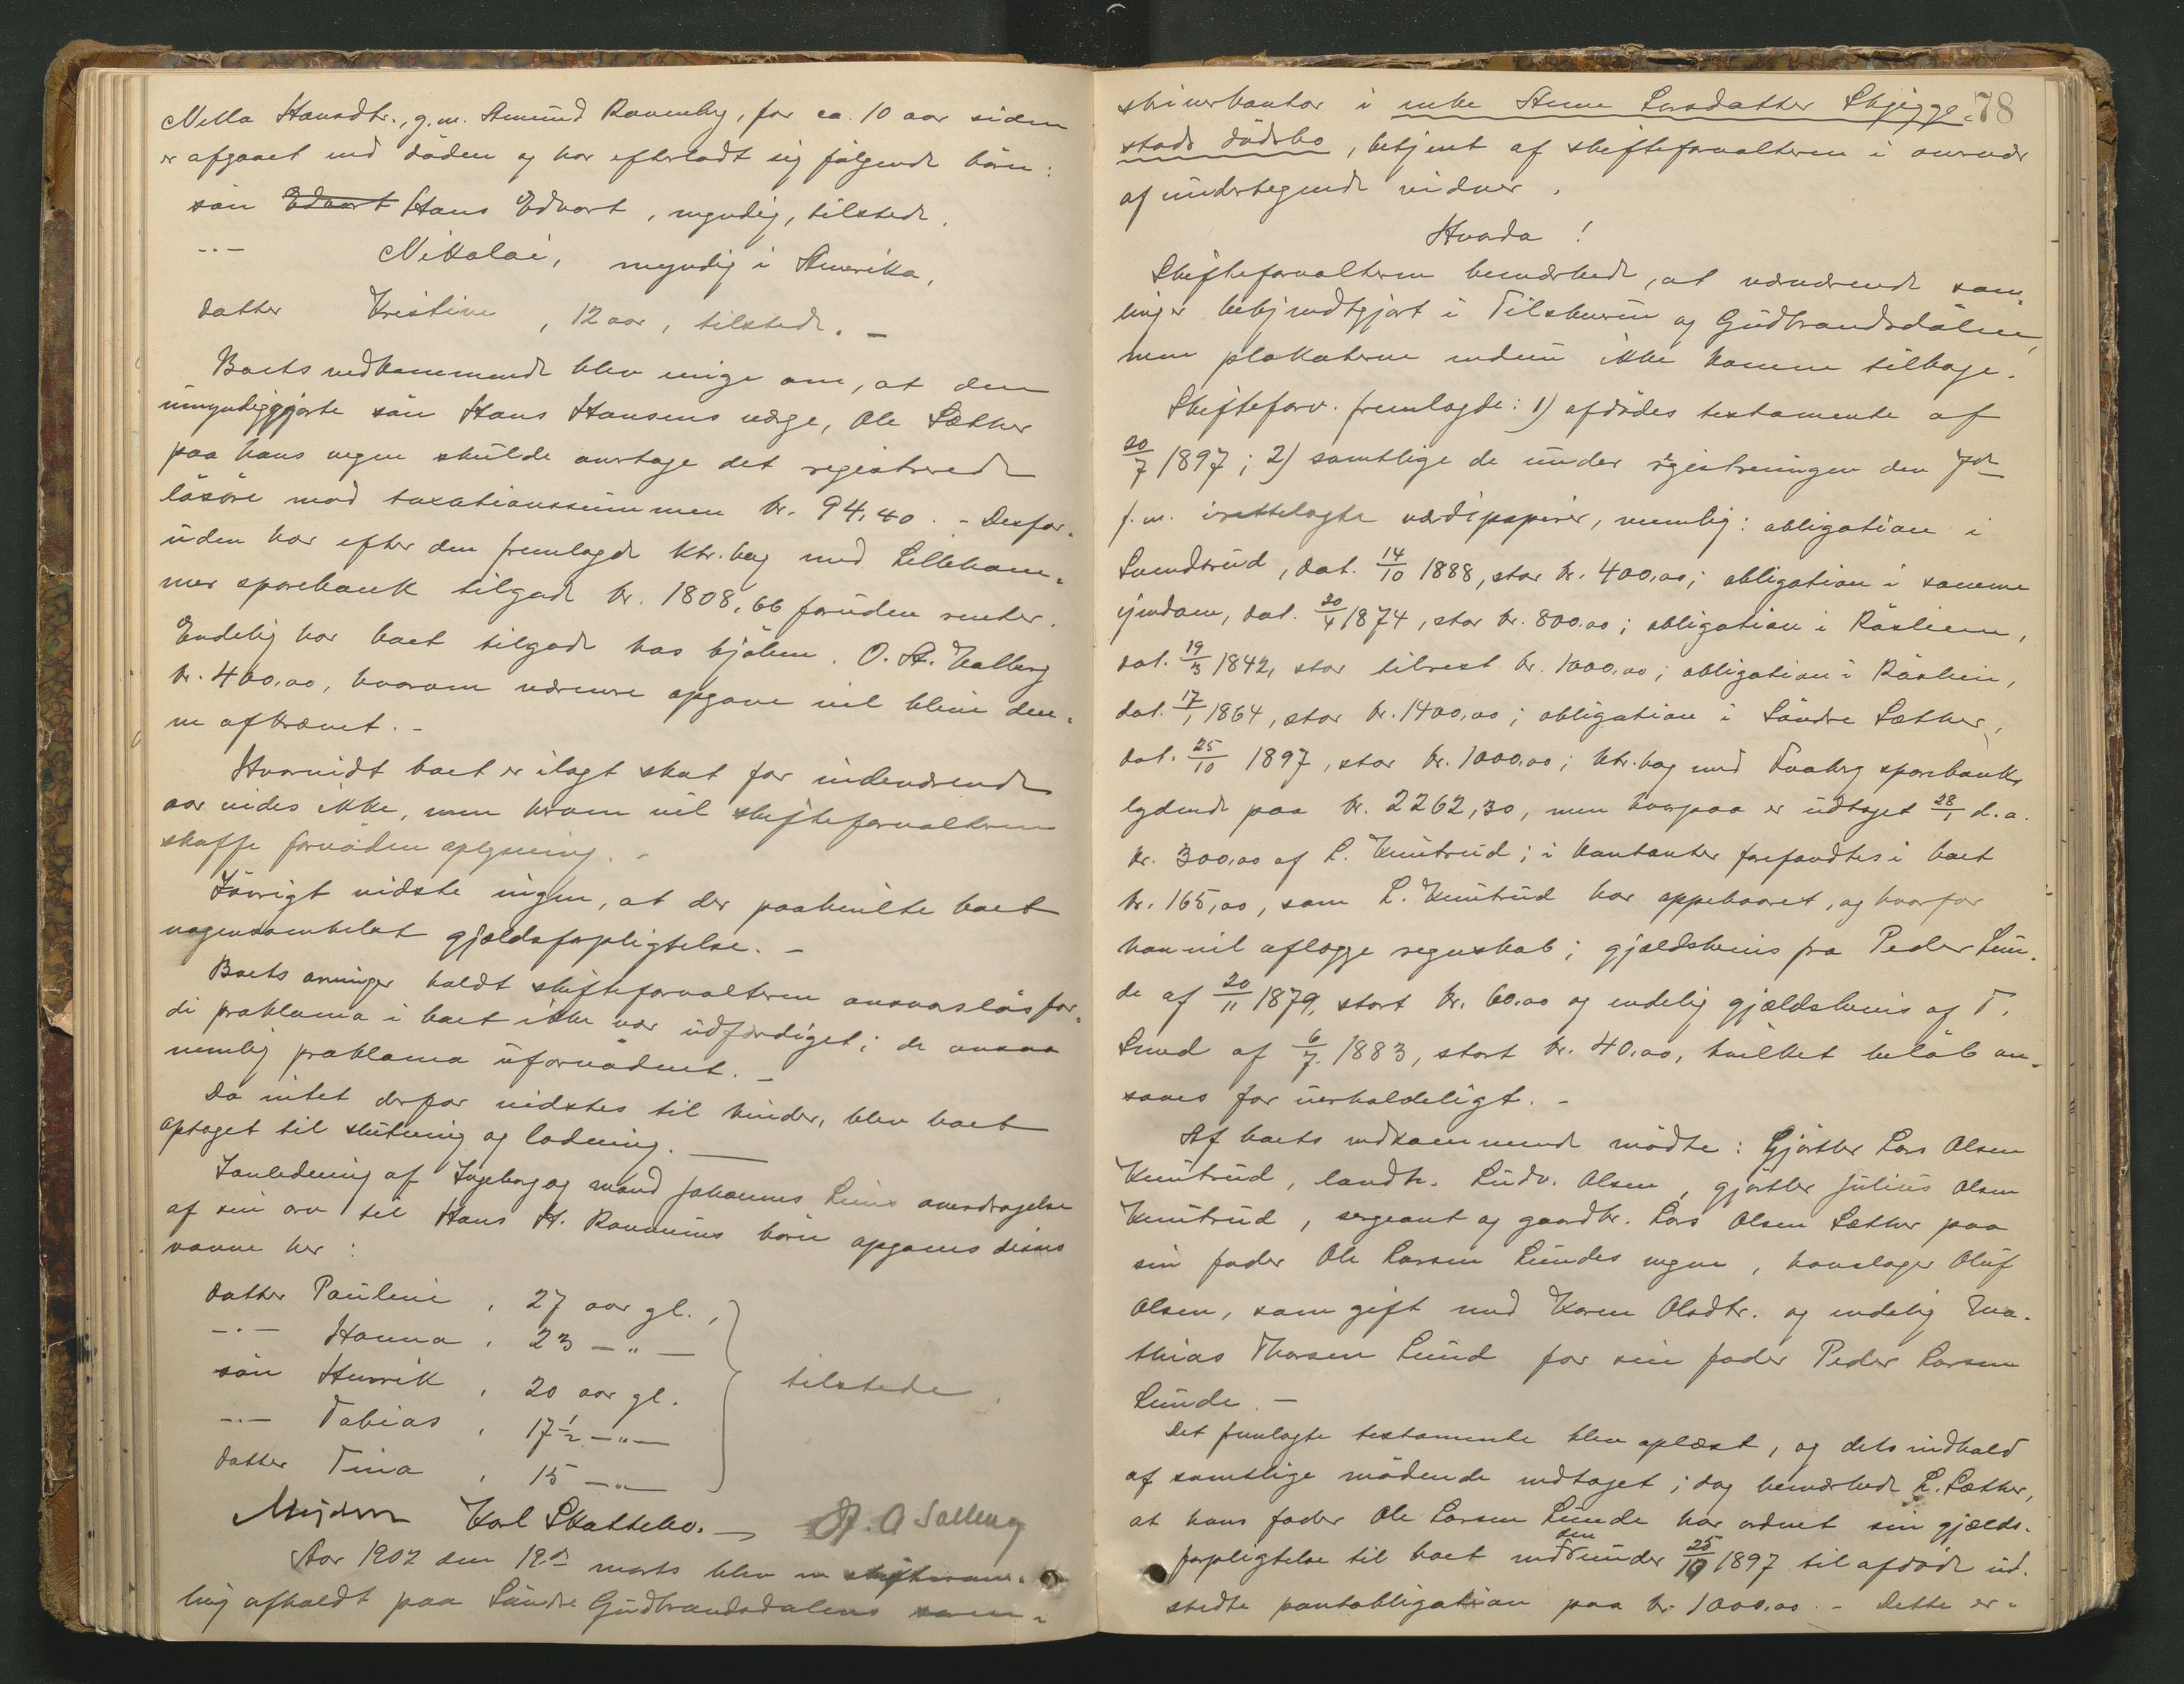 Nilla Hansdtr., g.m. Amund Ravenberg, for ca. 10 aar siden
er afgaaet ved døden og har efterladt sig følgende børn:
søn Edvart Hans Edvart, myndig, tilstede.
-"- Nikolai, myndig i Amerika,
datter Kristine, 12 aar, tilstede. –
Boets vedkommende blev enige om, at den
umyndiggjorte søn Hans Hansens værge, Ole Sæther
paa hans vegne skulde overtage det registrerede
løsøre mod taxationssummen kr. 94,40. – Desfor-
uden har efter den fremlagde ktr.bog med Lilleham-
mer sparebank tilgode kr. 1808,66 foruden renter.
Endelig har boet tilgode hos kjøbm. O. A.
kr. 400,00, hvorom nærmere opgave vil blive den-
ne afkrævet. –
Hvorvidt boet er ilagt skat for indeværende
aar vides ikke, men herom vil skifteforvalteren
skaffe fornøden oplysning. –
Iøvrigt vidste ingen, at der paahvilte boet
nogensomhelst gjældsforpligtelse. –
Boets arvinger holdt skifteforvalteren ansvarsløs for-
di proklama i boet ikke var udfærdiget; de ansaa
nemlig proklama ufornødent. –
Da intet derfor vidstes til hinder, blev boet
optaget til slutning og lodning. –
I anledning af Ingeborg og mand Johannes Lius overdragelse
af sin arv til Hans H. Ravnums børn opgaves disses
navne her:
datter Pauline, 27 aar gl.,
-"- Hanna, 23 -"-
søn Henrik, 20 aar gl. tilstede.
-"- Tobias, 17½ -"-
datter Tina, 15 -"-
Karl Skattebo. – A. O Solberg
Aar 1902 den 19de marts blev en skiftesam-
ling afholdt paa Søndre Gudbrandsdalens soren-
78
skriverkontor i enke Anne Larsdatter Skjegge-
stads dødsbo, betjent af skifteforvalteren i overvær
af undertegnede vidner.
Hvorda!
Skifteforvalteren bemærkede, at nærværende sam-
ling er bekjendtgjort i Tilskueren og Gudbrandsdølen,
men plakaterne endnu ikke komne tilbage.
Skifteforv. fremlagde: 1) afdødes testamente af
20/7 1897; 2) samtlige de under registreringen den 7de
f.m. irettelagte værdipapirer, nemlig: obligation i
Svendsrud, dat. 14/10 1888, stor kr. 400,00; obligation i samme
ejendom, dat. 20/4 1874, stor kr. 800.00; obligation i Råslien,
dat. 19/3 1842, stor tilrest kr. 1000,00; obligation i Råslien,
dat. 17/1 1864, stor kr. 1400,00; obligation i Søndre Sæther,
dat. 25/10 1897, stor kr. 1000.00; ktr.bog med Faaberg sparebank,
lydende paa kr. 2262,30, men hvorpaa er udtaget 28/1 d.a.
kr. 300,00 af L. Knutrud; i kontanter forefandtes i boet
kr. 165,00, som L. Knutrud har oppebaaret, og hvorfor
han vil aflægge regnskab; gjældsbevis fra Peder Lun-
de af 20/11 1879, stort kr. 60.00 og endelig gjældsbevis af T.
Lund af 6/7 1883, stort kr. 40,00, hvilket beløb an-
saaes for uerholdeligt. –
Af boets vedkommende mødte: Gjørtler Lars Olsen
Knutrud, landh. Ludv. Olsen, gjørtler Julius Olsen
Knutrud, sergeant og gaardbr. Lars Olsen Sæther paa
sin fader Ole Larsen Lundes vegne, hovslager Oluf
Olsen, som gift med Karen Olsdtr. og endelig Ma-
thias Thorsen Lund for sin fader Peder Larsen
Lunde. –
Det fremlagte testamente blev oplæst, og dets indhold
af samtlige mødende vedtaget; dog bemærkede L. Sæther,
at hans fader Ole Larsen Lunde har ordnet sin gjælds-
forpligtelse til boet ved den under 25/10 1897 til afdøde ud-
stedte pantobligation paa kr. 1000.00. – Dette er-